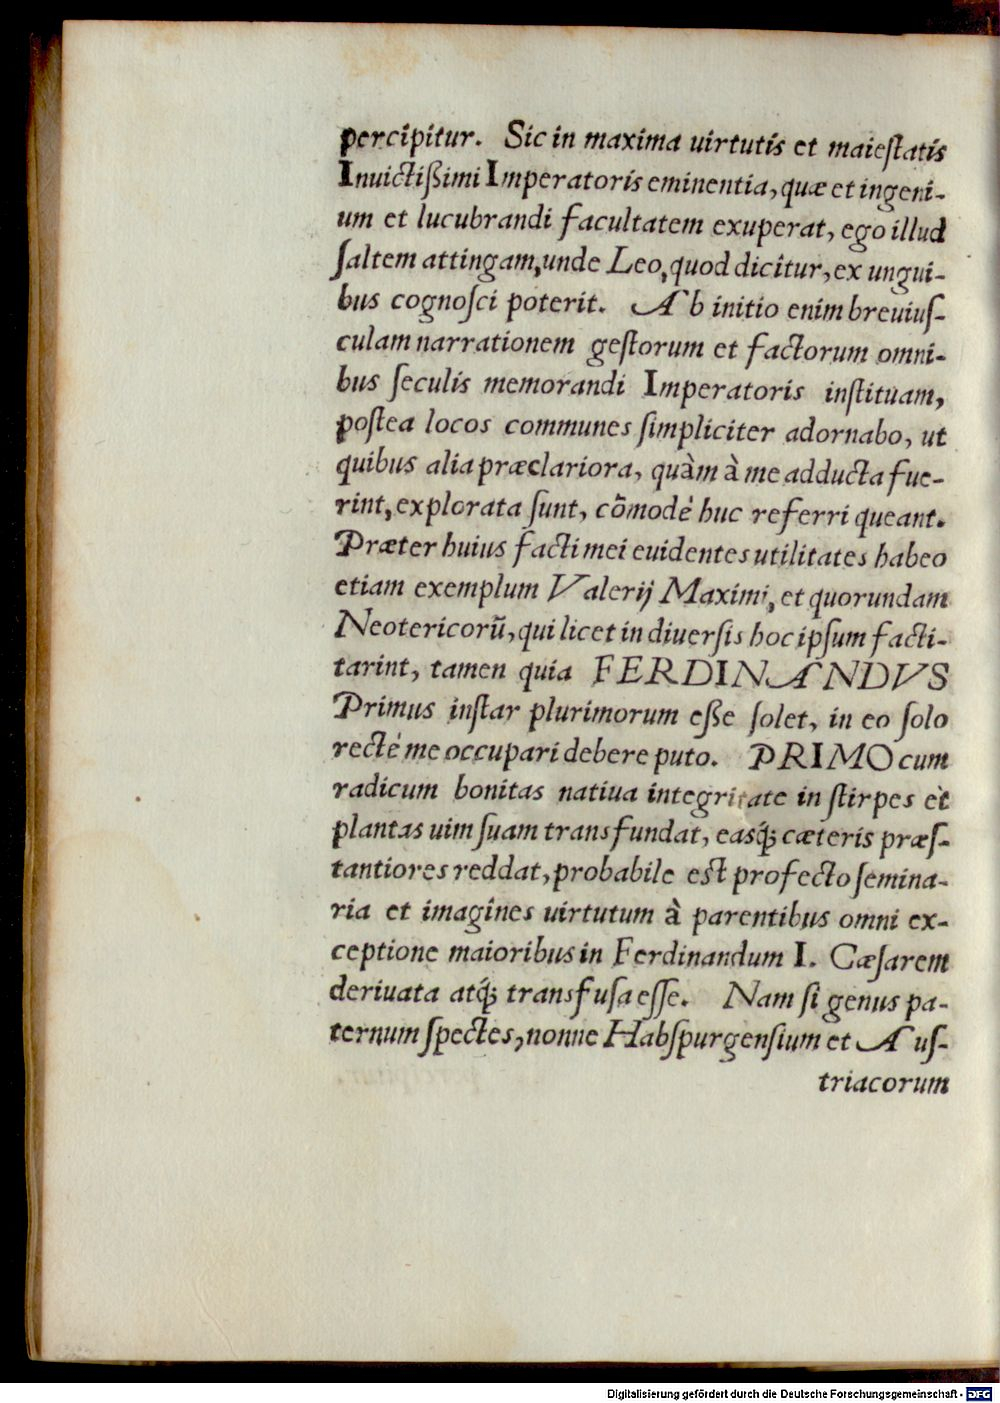 percipitur. Sic in maxima uirtutis et maieſtatis
Inuictißimi Imperatoris eminentia, quæ et ingeni-
um et lucubrandi facultatem exuperat, ego illud
ſaltem attingam, unde Leo, quod dicitur, ex ungui-
bus cognoſci poterit. Ab initio enim breuiuſ-
culam narrationem geſtorum et factorum omni-
bus ſeculis memorandi Imperatoris inſtituam,
poſtea locos communes ſimpliciter adornabo, ut
quibus alia præclariora, quàm à me adducta fue-
rint, explorata ſunt, cōmodè huc referri queant.
Præter huius facti mei euidentes utilitates habeo
etiam exemplum Valerij Maximi, et quorundam
Neotericorū, qui licet in diuerſis hoc ipſum facti-
tarint, tamen quia FERDINANDVS
Primus inſtar plurimorum eße ſolet, in eo ſolo
rectè me occupari debere puto. PRIMO cum
radicum bonitas natiua integritate in ſtirpes et
plantas uim ſuam transfundat, easq́; cæteris præſ-
tantiores reddat, probabile est profecto ſemina-
ria et imagines uirtutum à parentibus omni ex-
ceptione maioribus in Ferdinandum I. Cæſarem
deriuata atq́; transfuſa eſſe. Nam ſi genus pa-
ternum ſpectes, nonne Habſpurgenſium et Auſ-
triacorum
Digitalisierung gefördert durch die Deutsche Forschungsgemeinschaft - DFG